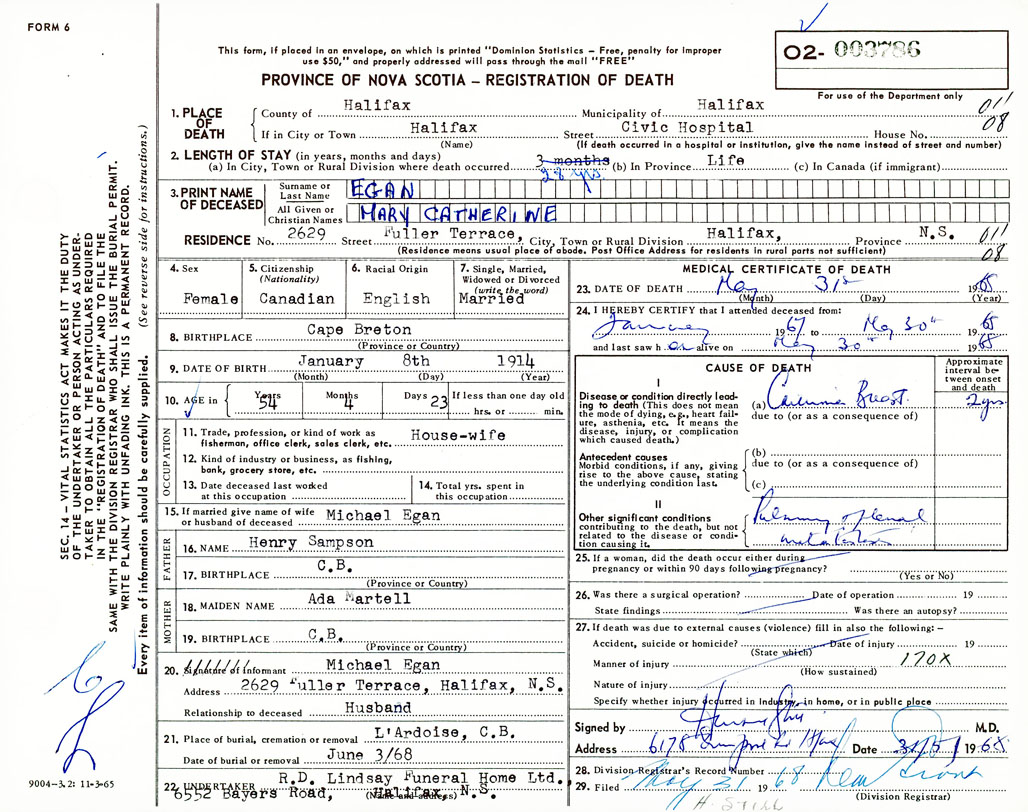 FORM 6
This form, if placed in an envelope, on which is printed "Dominion Statistics – Free, penalty for improper
use $50," and properly addressed will pass through the mail "FREE"
PROVINCE OF NOVA SCOTIA – REGISTRATION OF DEATH
02- 003786
For use of the Department only
011
08
SEC. 14 – VITAL STATISTICS ACT MAKES IT THE DUTY
OF THE UNDERTAKER OR PERSON ACTING AS UNDER-
TAKER TO OBTAIN ALL THE PARTICULARS REQUIRED
IN THE "REGISTRATION OF DEATH" AND TO FILE THE
SAME WITH THE DIVISION REGISTRAR WHO SHALL ISSUE THE BURIAL PERMIT.
WRITE PLAINLY WITH UNFADING INK. THIS IS A PERMANENT RECORD.
Every item of information should be carefully supplied. (See reverse side for instructions.)
1. PLACE OF DEATH
County of Halifax Municipality of Halifax
If in City or Town Halifax Street Civic Hospital House No.
(Name) (If death occurred in a hospital or institution, give the name instead of street and number)
2. LENGTH OF STAY (in years, months and days)
(a) In City, Town or Rural Division where death occurred 3 months (b) In Province Life (c) In Canada (if immigrant)
28 yrs.
3. PRINT NAME OF DECEASED
Surname or Last Name EGAN
All Given or Christian Names MARY CATHERINE
RESIDENCE No. 2629 Street Fuller Terrace, City, Town or Rural Division Halifax, Province N.S.
(Residence means usual place of abode. Post Office Address for residents in rural parts not sufficient)
011
08
4. Sex
Female
5. Citizenship
(Nationality)
Canadian
6. Racial Origin
English
7. Single, Married, Widowed or Divorced
(write the word)
Married
8. BIRTHPLACE Cape Breton
(Province or Country)
9. DATE OF BIRTH January 8th 1914
(Month) (Day) (Year)
10. AGE in Years 54 Months 4 Days 23 If less than one day old
hrs. or min.
OCCUPATION
11. Trade, profession, or kind of work as
fisherman, office clerk, sales clerk, etc. House-wife
12. Kind of industry or business, as fishing,
bank, grocery store, etc.
13. Date deceased last worked
at this occupation
14. Total yrs. spent in
this occupation
15. If married give name of wife
or husband of deceased Michael Egan
FATHER
16. NAME Henry Sampson
17. BIRTHPLACE C.B.
(Province or Country)
MOTHER
18. MAIDEN NAME Ada Martell
19. BIRTHPLACE C.B.
(Province or Country)
20. Signature of Informant Michael Egan
Address 2629 Fuller Terrace, Halifax, N.S.
Relationship to deceased Husband
21. Place of burial, cremation or removal L'Ardoise, C.B.
Date of burial or removal June 3/68
22. UNDERTAKER R.D. Lindsay Funeral Home Ltd.,
6552 Bayers Road, Halifax, N.S.
(Name and address)
9004–3.2: 11-3-65
MEDICAL CERTIFICATE OF DEATH
23. DATE OF DEATH May 31st 1968
(Month) (Day) (Year)
24. I HEREBY CERTIFY that I attended deceased from:
January 1967 to May 30th 1968
and last saw h er alive on May 30th 1968
CAUSE OF DEATH
Approximate interval between onset and death
I
Disease or condition directly lead-
ing to death (This does not mean
the mode of dying, e.g., heart fail-
ure, asthenia, etc. It means the
disease, injury, or complication
which caused death.)
(a) Carcinoma Breast 2 yrs
due to (or as a consequence of)
Antecedent causes
Morbid conditions, if any, giving
rise to the above cause, stating
the underlying condition last.
(b)
due to (or as a consequence of)
(c)
II
Other significant conditions
contributing to the death, but not
related to the disease or condi-
tion causing it.
Pulmonary
metastases
25. If a woman, did the death occur either during
pregnancy or within 90 days following pregnancy?
(Yes or No)
26. Was there a surgical operation? Date of operation 19
State findings Was there an autopsy?
27. If death was due to external causes (violence) fill in also the following: –
Accident, suicide or homicide? Date of injury 19
(State which)
Manner of injury 170X
(How sustained)
Nature of injury
Specify whether injury occurred in Industry, in home, or in public place
Signed by M.D.
Address 6178 Date 31/5/ 1968
28. Division Registrar's Record Number
29. Filed May 31 1968
(Division Registrar)
H. STILL